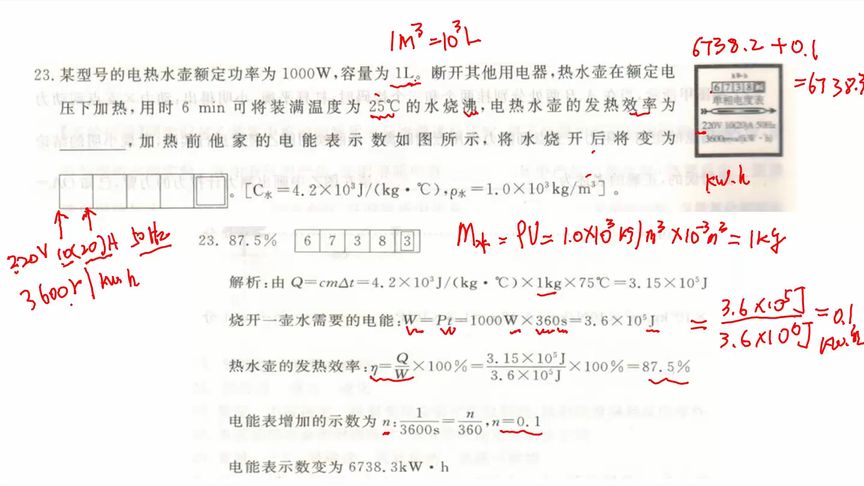 1m³=10³L
6738.2+0.1
=6738.3
23.某型号的电热水壶额定功率为1000W,容量为1L。断开其他用电器,热水壶在额定电
压下加热,用时6 min可将装满温度为25℃的水烧沸,电热水壶的发热效率为
________,加热前他家的电能表示数如图所示,将水烧开后将变为
。[C水=4.2×10³J/(kg·℃),ρ水=1.0×10³kg/m³]。
kW·h
6 7 3 8
单相电度表
220V 10(20)A 50Hz
kw.h
220V 10(20)A 50Hz
3600r/kw h
23. 87.5% 6 7 3 8 3
M水=ρV=1.0×10³kg/m³×10⁻³m³=1kg
解析:由Q=cmΔt=4.2×10³J/(kg·℃)×1kg×75℃=3.15×10⁵J
烧开一壶水需要的电能:W=Pt=1000W×360s=3.6×10⁵J
=3.6×10⁵J/3.6×10⁶J=0.1kw.h
热水壶的发热效率:η=Q/W×100%=3.15×10⁵J/3.6×10⁵J×100%=87.5%
电能表增加的示数为n:1/3600s=n/360,n=0.1
电能表示数变为6738.3kW·h